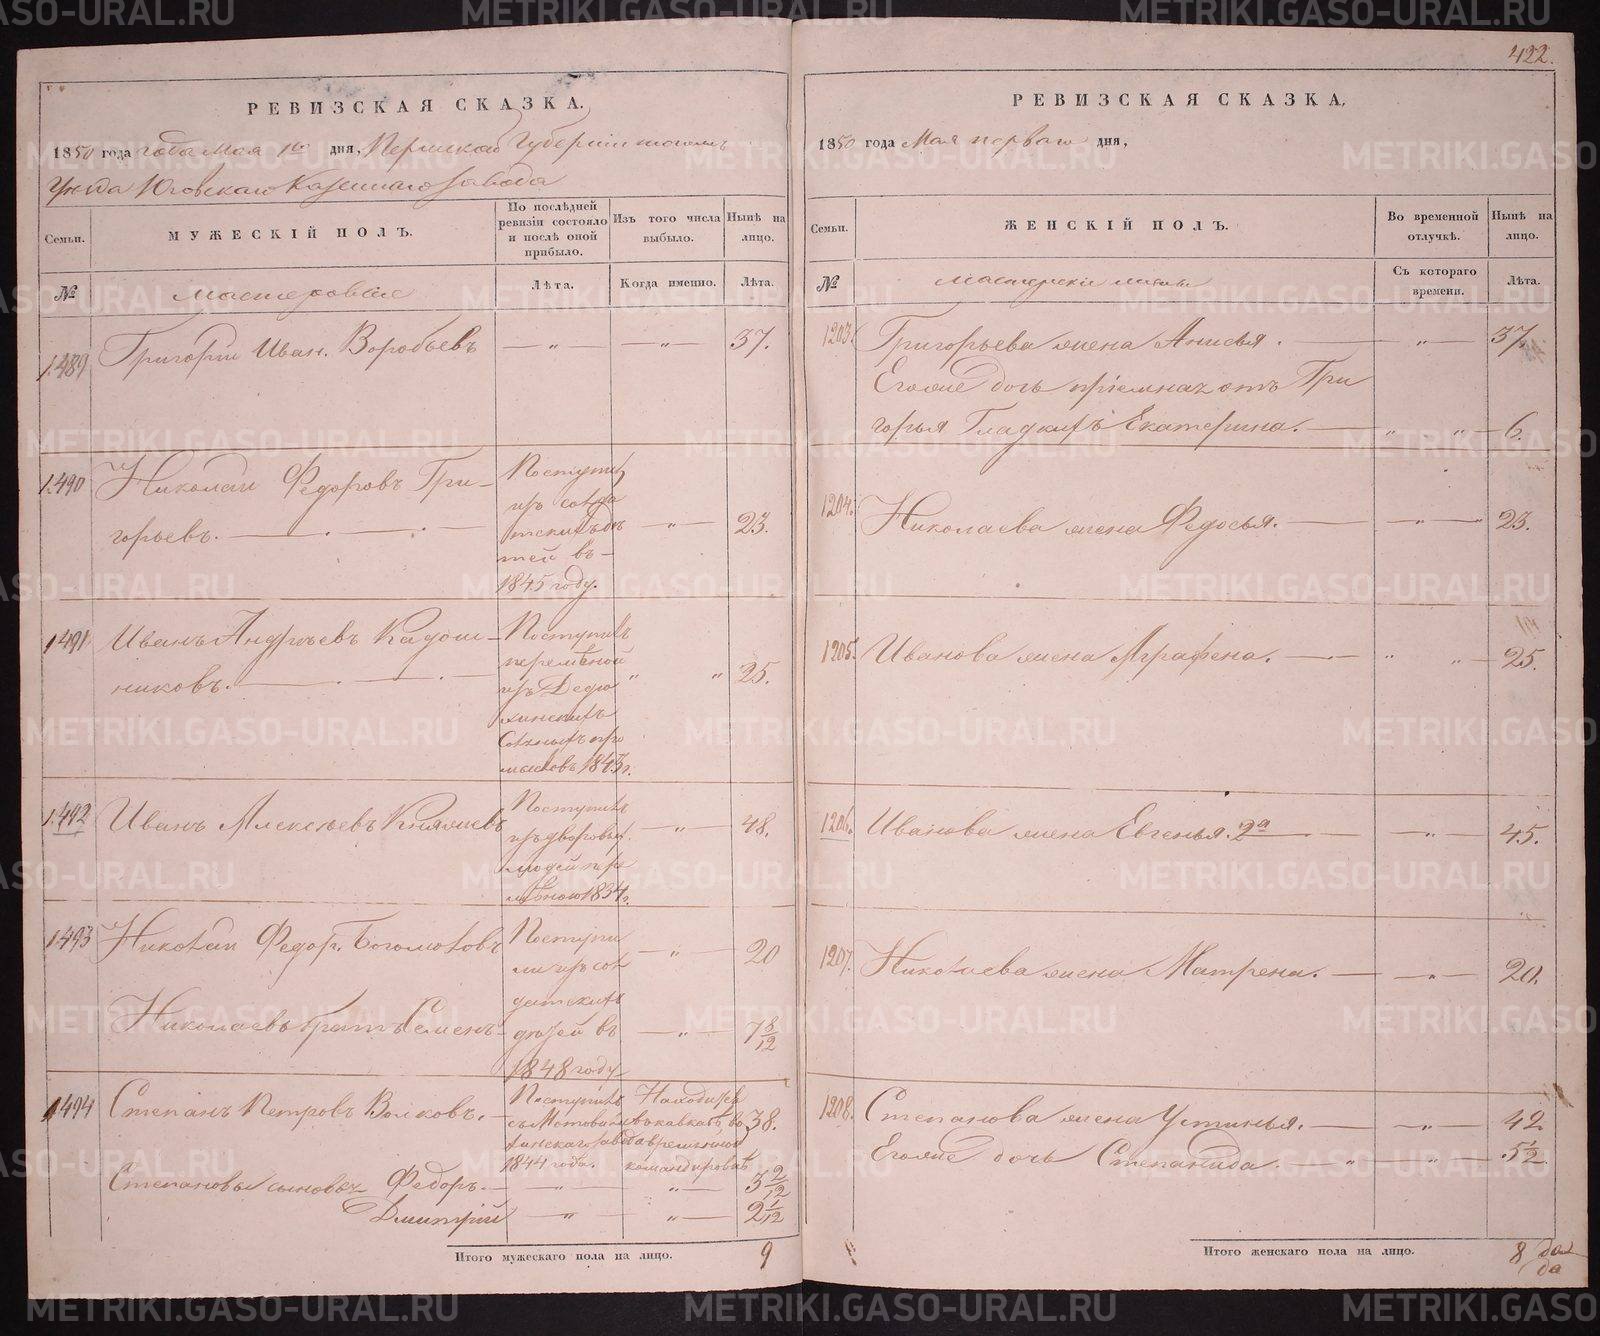 422.
РЕВИЗСКАЯ СКАЗКА.
1850 года года Мая 1го дня, Пермской Губернiи тогожъ
Уѣзда Юговскаго Казеннаго завода
Семьи.
МУЖЕСКIЙ ПОЛЪ.
По послѣдней
ревизiи состояло
и послѣ оной
прибыло.
Изъ того числа
выбыло.
Нынѣ на
лицо.
№
Мастеровые
Лѣта.
Когда именно.
Лѣта.
1489 Григорiи Иван. Воробьевъ — „ — — „ — 37.
1490 Николаи Федоровъ Гри-
горьевъ. — „ — 23.
Поступил
изъ солда
тскихъ дѣ
тей въ
1845 году.
1491 Иванъ Андрѣевъ Кадош-
никовъ. „ „ 25.
Поступилъ
перемѣной
изъ Дедю
хинскихъ
Соляныхъ про
мысловъ 1843г.
1492 Иванъ Алексѣевъ Княжевъ — „ — 48.
Поступилъ
изъ дворовых
людей пре
мѣною 1834г.
1493 Николаи Федор. Богомоловъ — „ — 20
Николаевъ братъ Семенъ — „ — 7 8/12
Поступи
ли изъ сол
датских
дѣтей въ
1848 году
1494 Степанъ Петровъ Волковъ. — 38.
Поступилъ
съ Мотовили
хинскаго завода
1844 года.
Находится
на Кавказѣ во
временной
командировкѣ
Степановы сыновья Федоръ. — „ — — „ — 3 2/12
Дмитрiй — „ — — „ — 2 1/12
Итого мужескаго пола на лицо. 9
РЕВИЗСКАЯ СКАЗКА,
1850 года Мая перваго дня,
Семьи.
ЖЕНСКIЙ ПОЛЪ.
Во временной
отлучкѣ.
Нынѣ на
лицо.
№
Мастерскiя жены
Съ котораго
времени.
Лѣта.
1203. Григорьева жена Анисья. — „ — 37.
Егоже дочь прiемная отъ Гри
горья Гладкихъ Екатерина. — „ „ — 6.
1204. Николаева жена Федосья. — „ — 23.
1205. Иванова жена Аграфена. — „ „ — 25.
1206. Иванова жена Евгенья. 2а — „ — 45.
1207. Николаева жена Матрена. — „ — 20.
1208. Степанова жена Устинья. — „ — 42
Егоже дочь Степанида. — „ — „ — 5 1/2.
Итого женскаго пола на лицо. 8
METRIKI.GASO-URAL.RU